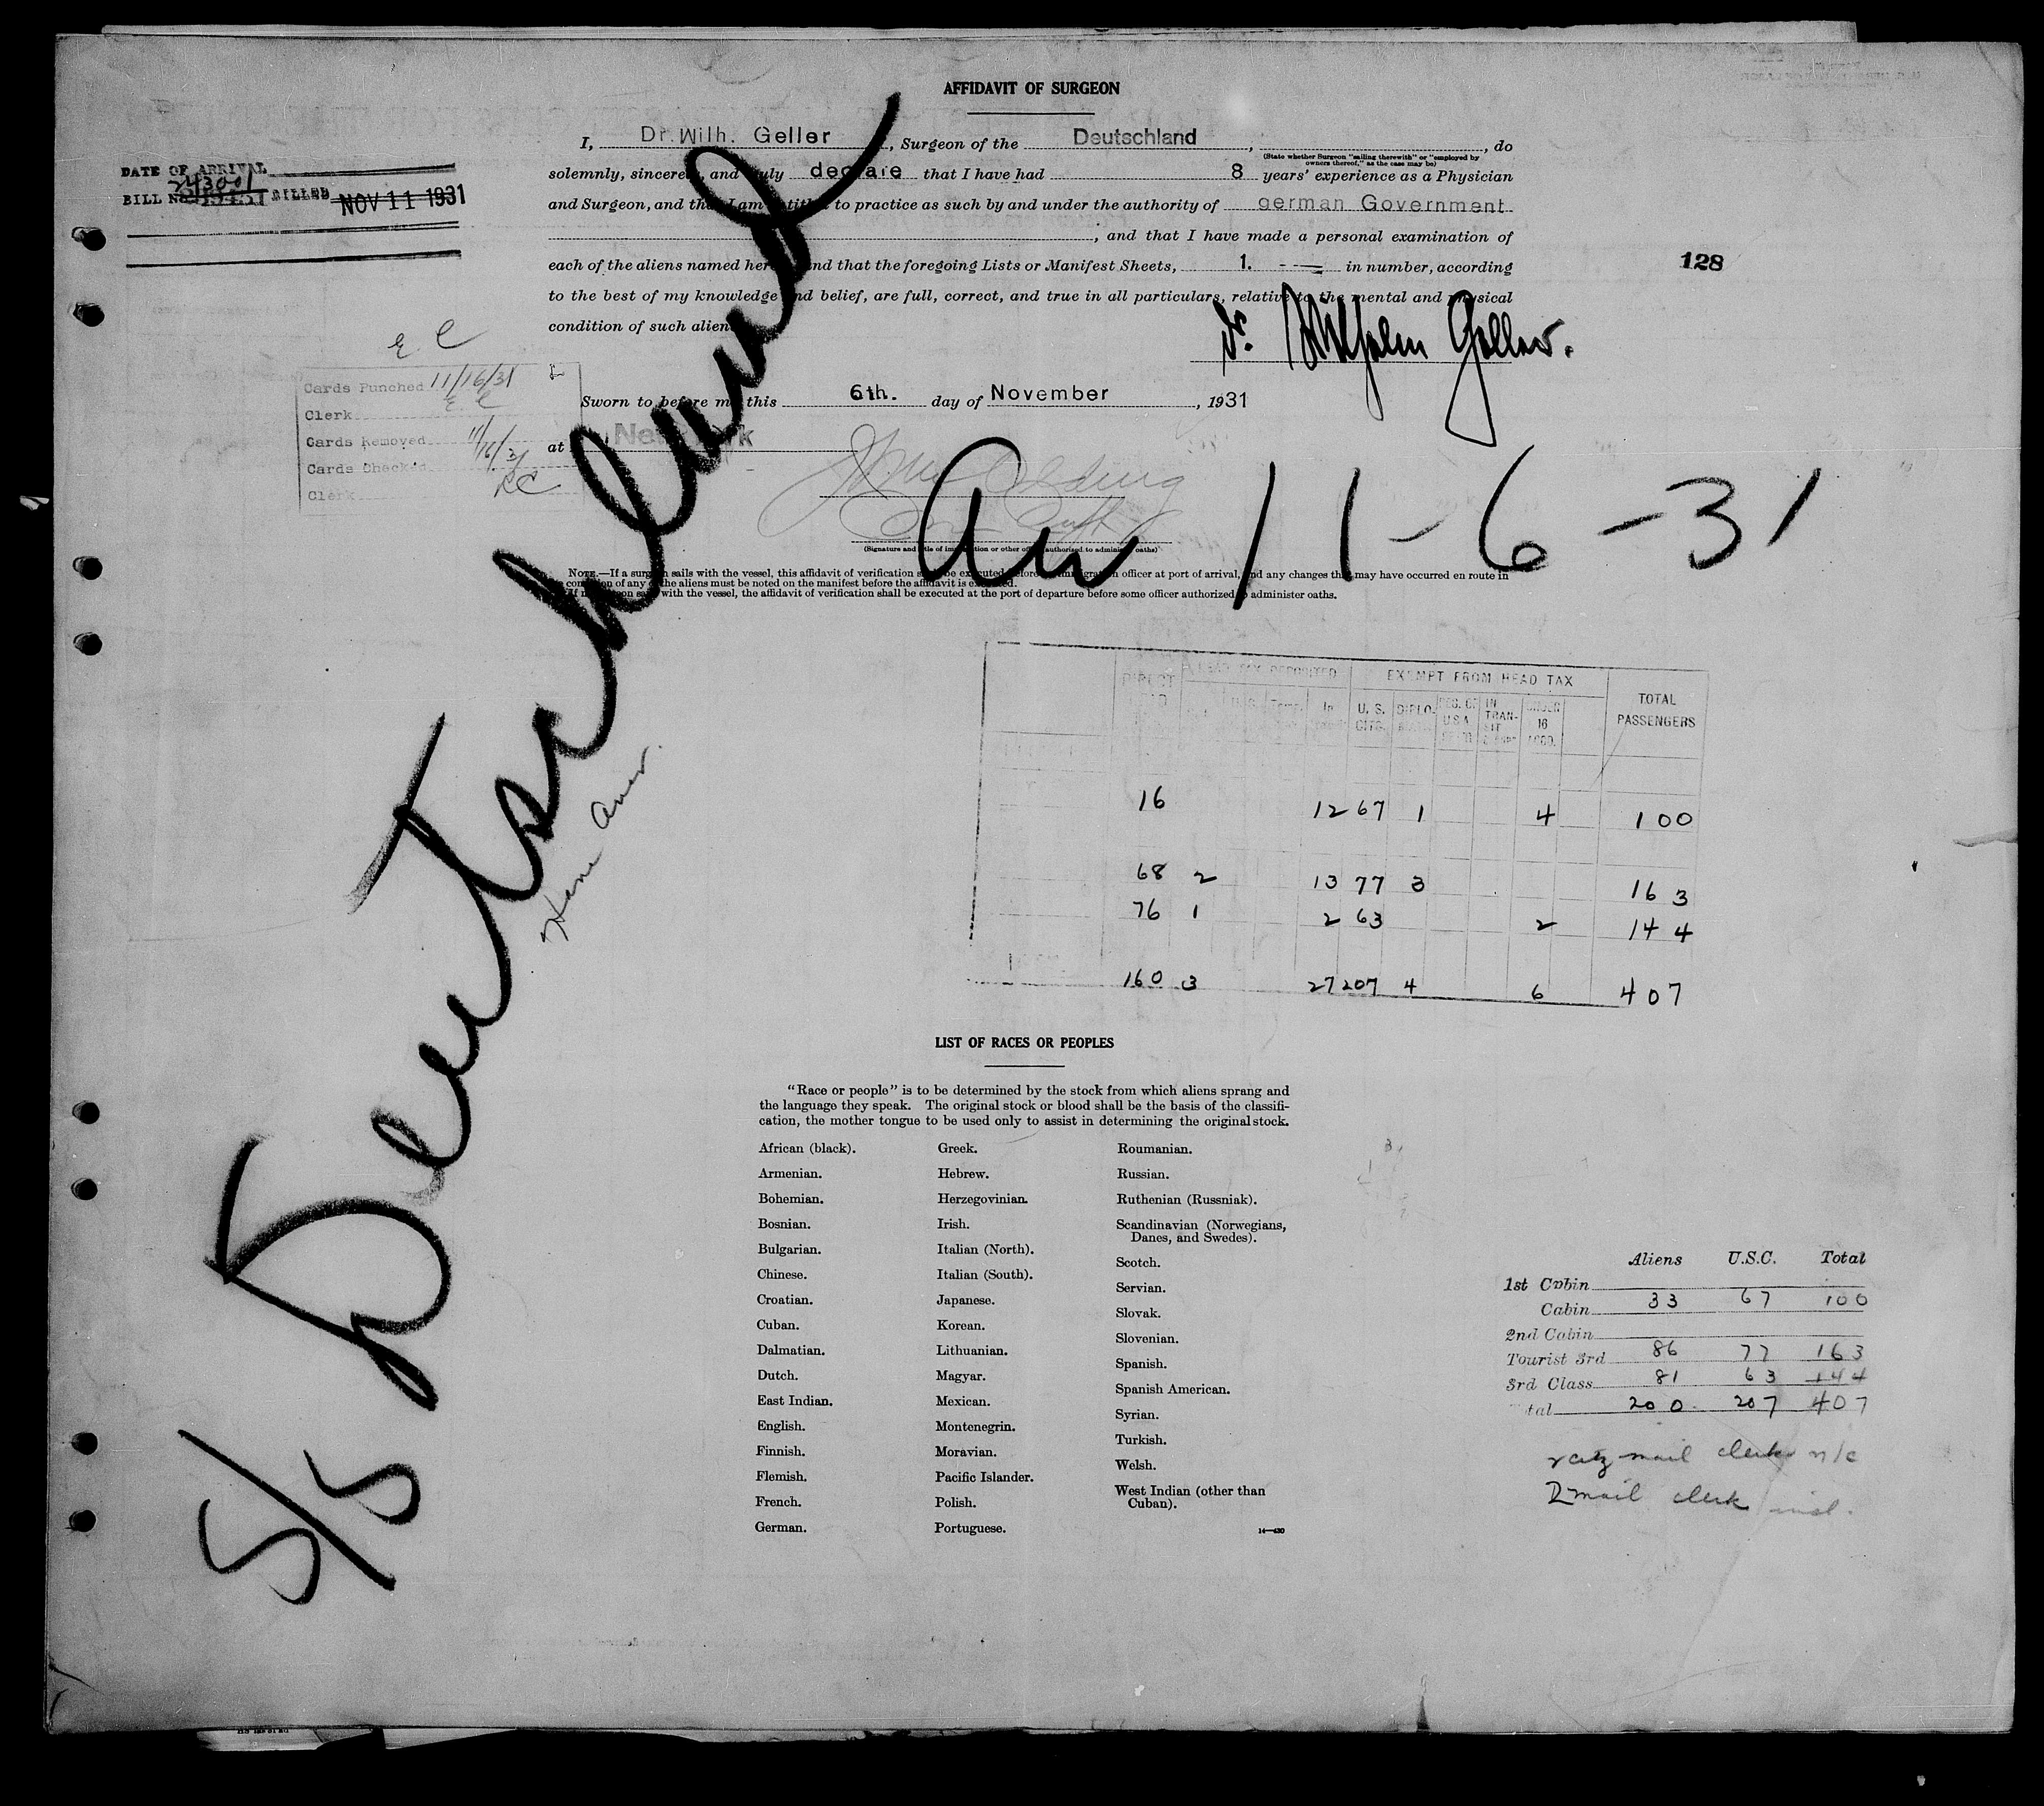 AFFIDAVIT OF SURGEON
I, Dr. Wilh. Geller, Surgeon of the Deutschland, , do
(State whether Surgeon "sailing therewith" or "employed by
owners thereof," as the case may be)
solemnly, sincerely, and truly declare that I have had 8 years' experience as a Physician
and Surgeon, and that I am entitled to practice as such by and under the authority of german Government
, and that I have made a personal examination of
each of the aliens named herein and that the foregoing Lists or Manifest Sheets, 1. in number, according
to the best of my knowledge and belief, are full, correct, and true in all particulars, relative to the mental and physical
condition of such aliens.
Dr. Wilhelm Geller.
Sworn to before me this 6th. day of November, 1931
at New York
(Signature and title of immigration or other officer authorized to administer oaths)
NOTE.—If a surgeon sails with the vessel, this affidavit of verification shall be executed before immigration officer at port of arrival, and any changes that may have occurred en route in
condition of any of the aliens must be noted on the manifest before the affidavit is executed.
If no surgeon sails with the vessel, the affidavit of verification shall be executed at the port of departure before some officer authorized to administer oaths.
DATE OF ARRIVAL
243001
BILL No. BILLED NOV 11 1931
128
E C
Cards Punched 11/16/31
Clerk E C
Cards Removed
Cards Checked 11/16/31
Clerk
S/S Deutschland
Arr 11-6-31
Ham Amer.
HEAD TAX DEPOSITED EXEMPT FROM HEAD TAX TOTAL PASSENGERS
DIRECT U. S. CITS. DIPLO. RES. OF U S A IN TRAN- SIT UNDER 16 ACCO.
16 12 67 1 4 100
68 2 13 77 3 163
76 1 2 63 2 144
160 3 27 207 4 6 407
LIST OF RACES OR PEOPLES
"Race or people" is to be determined by the stock from which aliens sprang and
the language they speak. The original stock or blood shall be the basis of the classifi-
cation, the mother tongue to be used only to assist in determining the original stock.
African (black).
Armenian.
Bohemian.
Bosnian.
Bulgarian.
Chinese.
Croatian.
Cuban.
Dalmatian.
Dutch.
East Indian.
English.
Finnish.
Flemish.
French.
German.
Greek.
Hebrew.
Herzegovinian.
Irish.
Italian (North).
Italian (South).
Japanese.
Korean.
Lithuanian.
Magyar.
Mexican.
Montenegrin.
Moravian.
Pacific Islander.
Polish.
Portuguese.
Roumanian.
Russian.
Ruthenian (Russniak).
Scandinavian (Norwegians,
Danes, and Swedes).
Scotch.
Servian.
Slovak.
Slovenian.
Spanish.
Spanish American.
Syrian.
Turkish.
Welsh.
West Indian (other than
Cuban).
14—430
Aliens U.S.C. Total
1st Cabin
Cabin 33 67 100
2nd Cabin
Tourist 3rd 86 77 163
3rd Class 81 63 144
Total 200 207 407
mail clerks n/c
2 mail clerk incl.